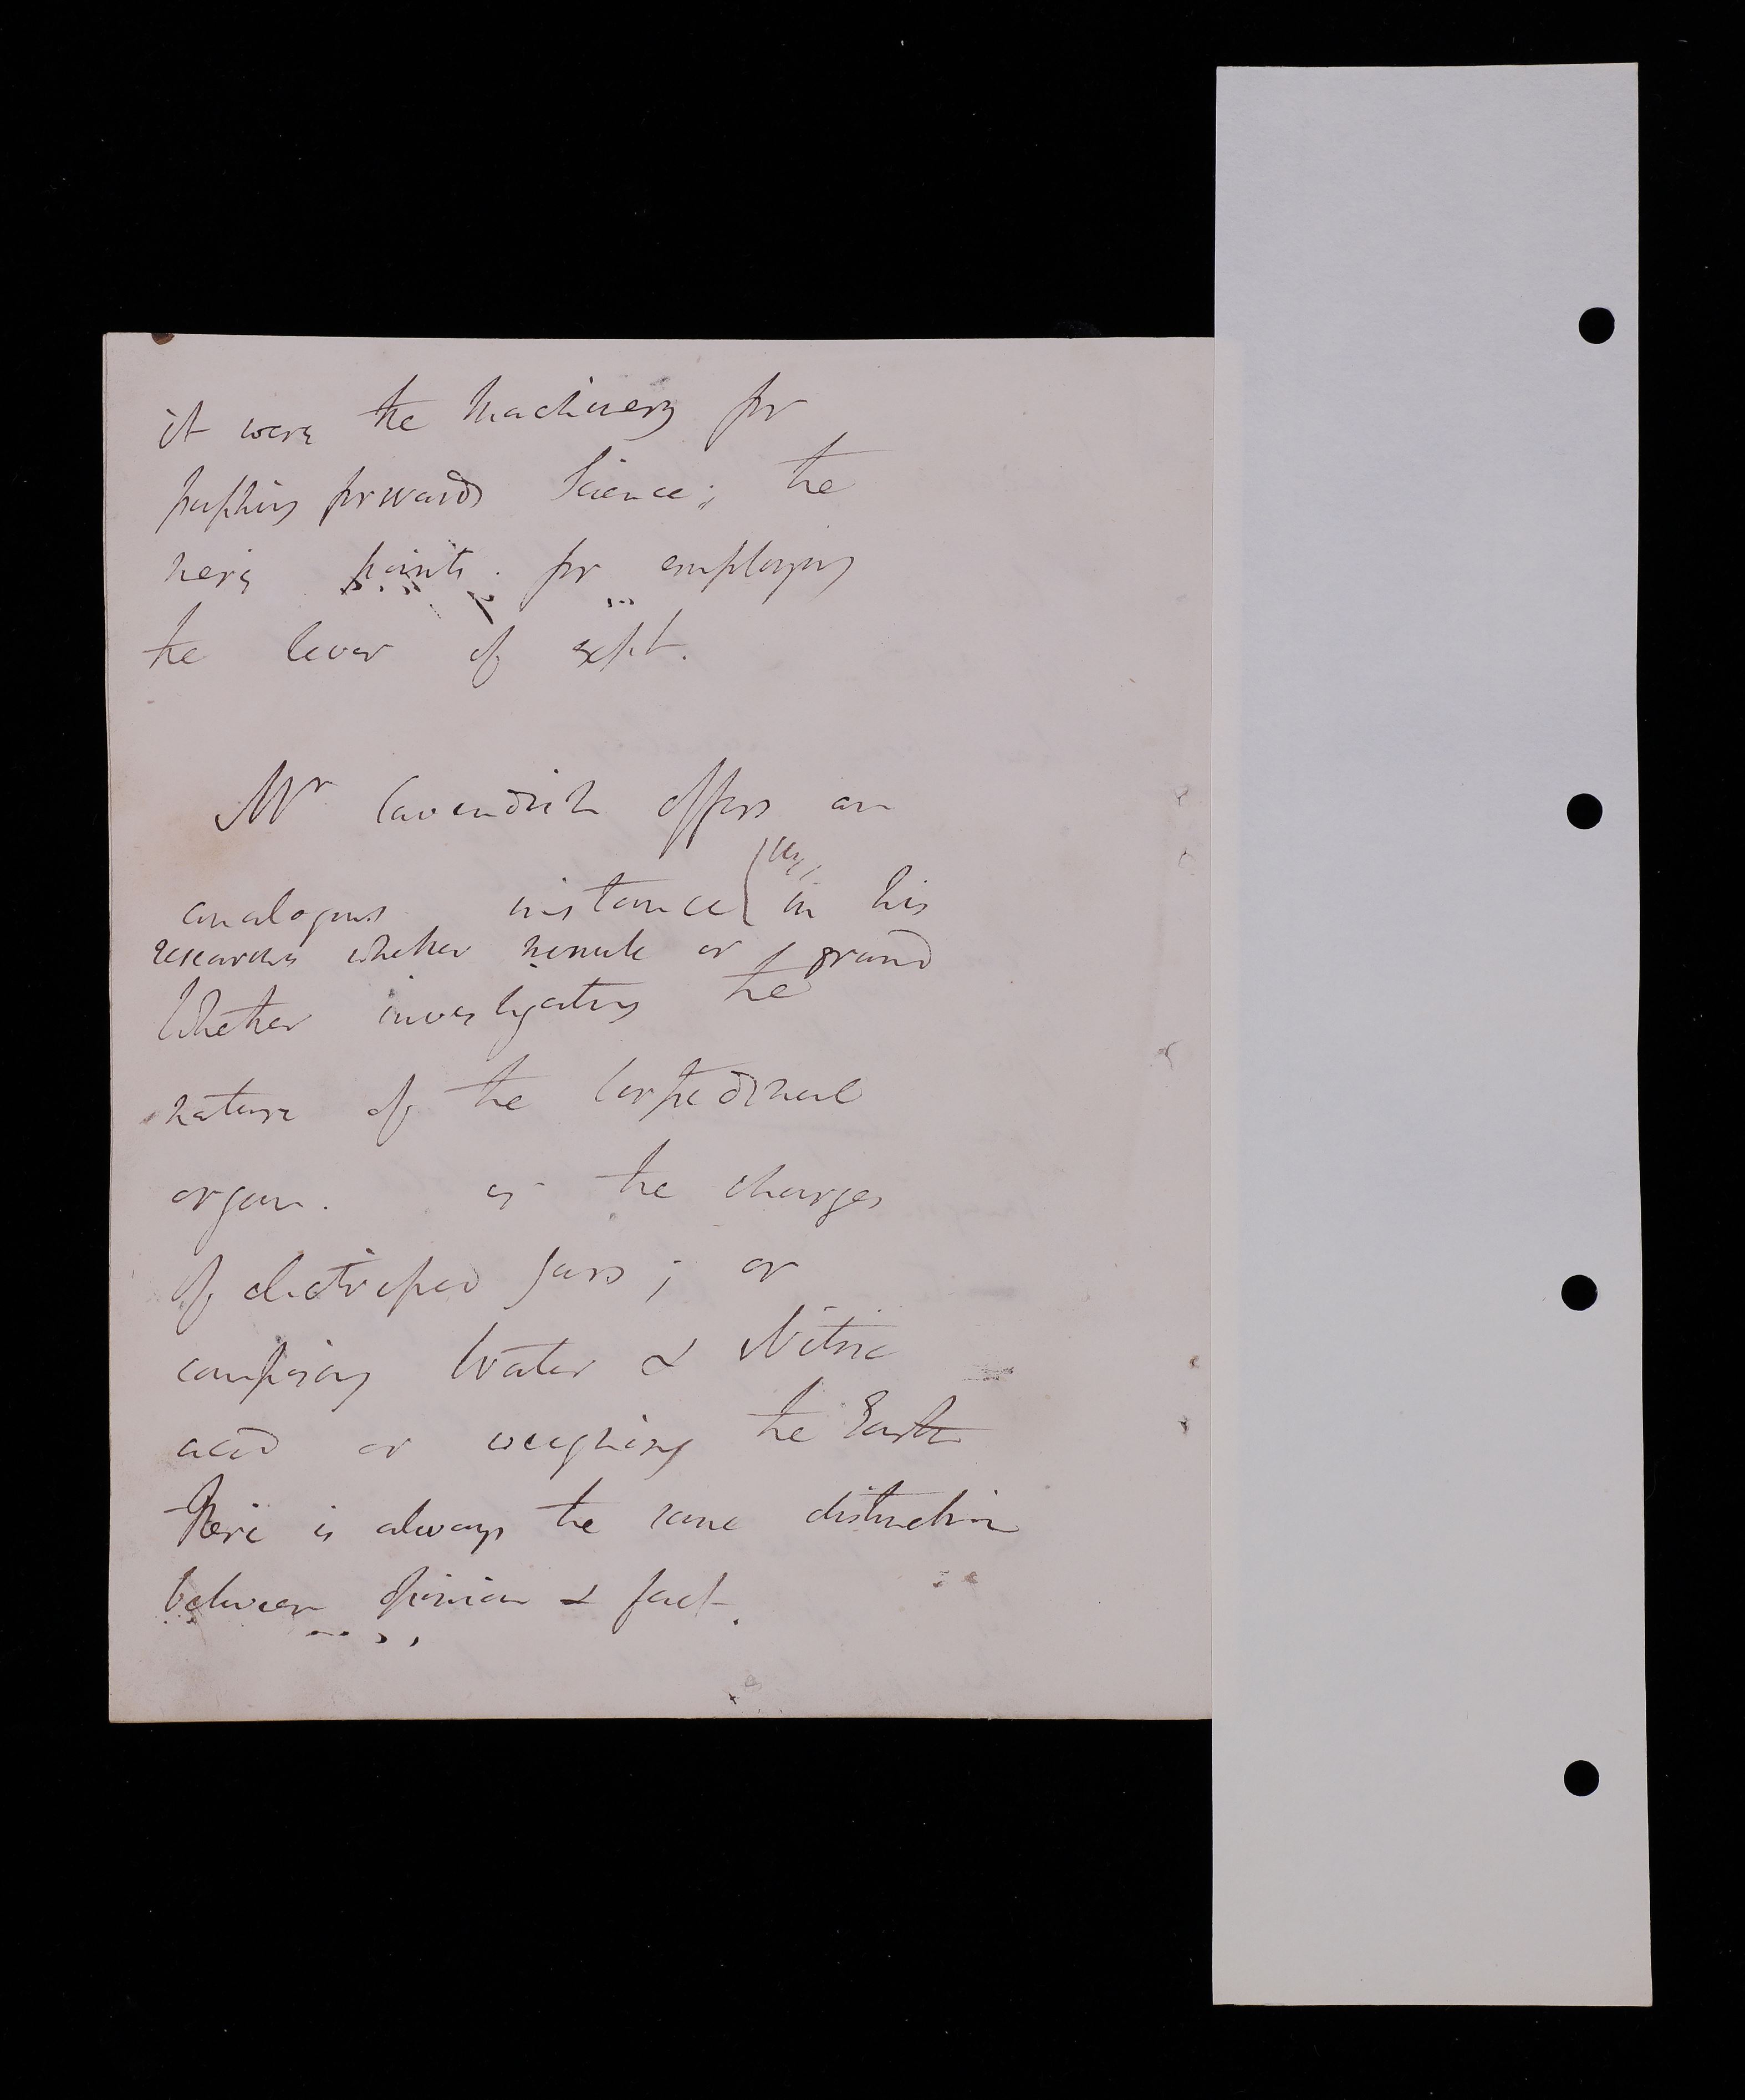 it were the Machinery for
pushing forwards Science; the
mere points for employing
the lever of expt.
Mr Cavendish offers an
analogous instance in his
researches whether minute or grand
Whether investigating the
nature of the torpedinal
organ. or the charges
of electrified jars; or
composing Water & Nitric
acid or weighing the Earth
There is always the same distinction
between opinion & fact.